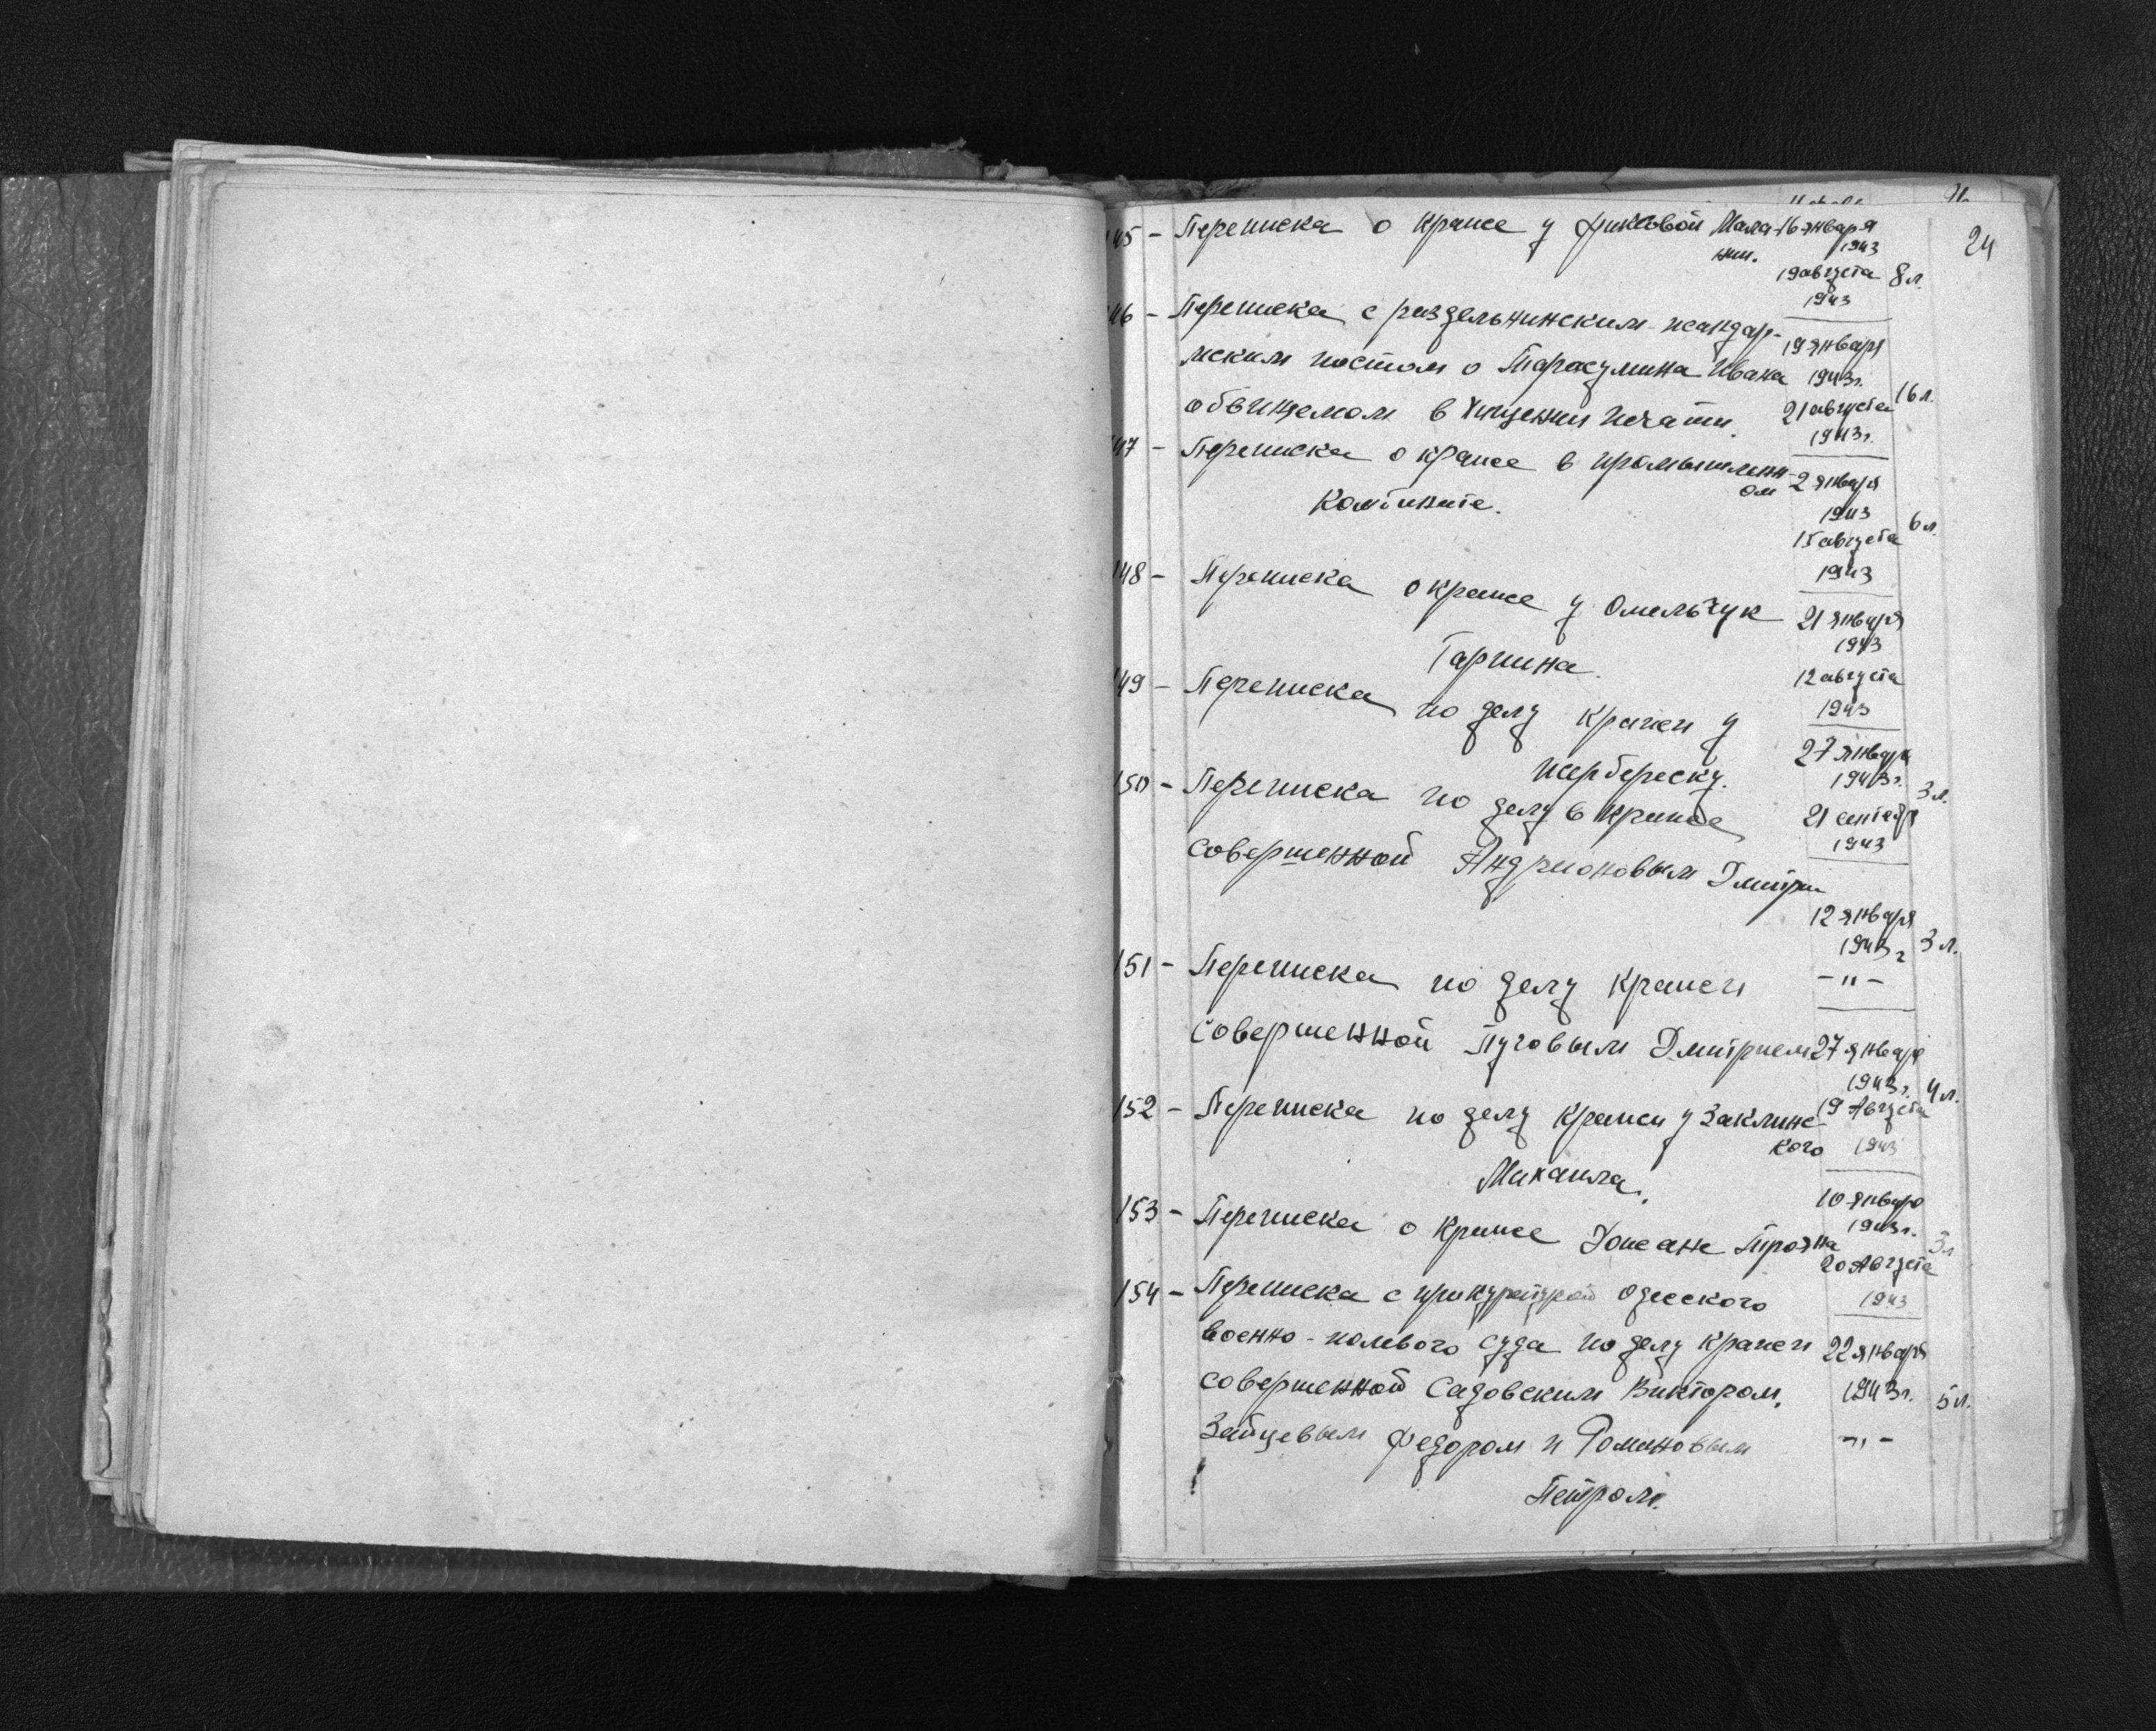 24
145 - Переписка о краже у Фиксовой Мала- 16 января
нии. 1943
19 августа 8 л.
1943
146 - Переписка с раздельнинским жандар- 19 января
мским постом о Тарасулина Ивана 1943 г. 16 л.
обвиняемом в хищении печати. 21 августа
1943 г.
147 - Переписка о краже в промышленн- 2 января
ом 1943
Комбинате. 6 л.
15 августа
1943
148 - Переписка о краже у Омельчук 21 января
1943
Гарпина. 12 августа
1943
149 - Переписка по делу кражи у 27 января
Жербереску. 1943 г. 3 л.
21 сентября
1943
150 - Переписка по делу в краже
совершенной Андрионовым Дмитри
12 января
1943 г 3 л.
-"-
151 - Переписка по делу кражи
совершенной Пуговым Дмитрием 27 января
1943 г. 4 л.
19 Августа
1943
152 - Переписка по делу кражи у Заклинс
кого
Михаила. 10 январо
1943 г. 3 л
20 Августа
1943
153 - Переписка о краже Иоеане Трояна
154 - Переписка с прокуратурой Одесского
военно-полевого суда по делу кражи 22 января
совершенной Садовским Виктором, 1943 г. 5 л.
Зайцевым Федором и Романовым -"-
Петром.